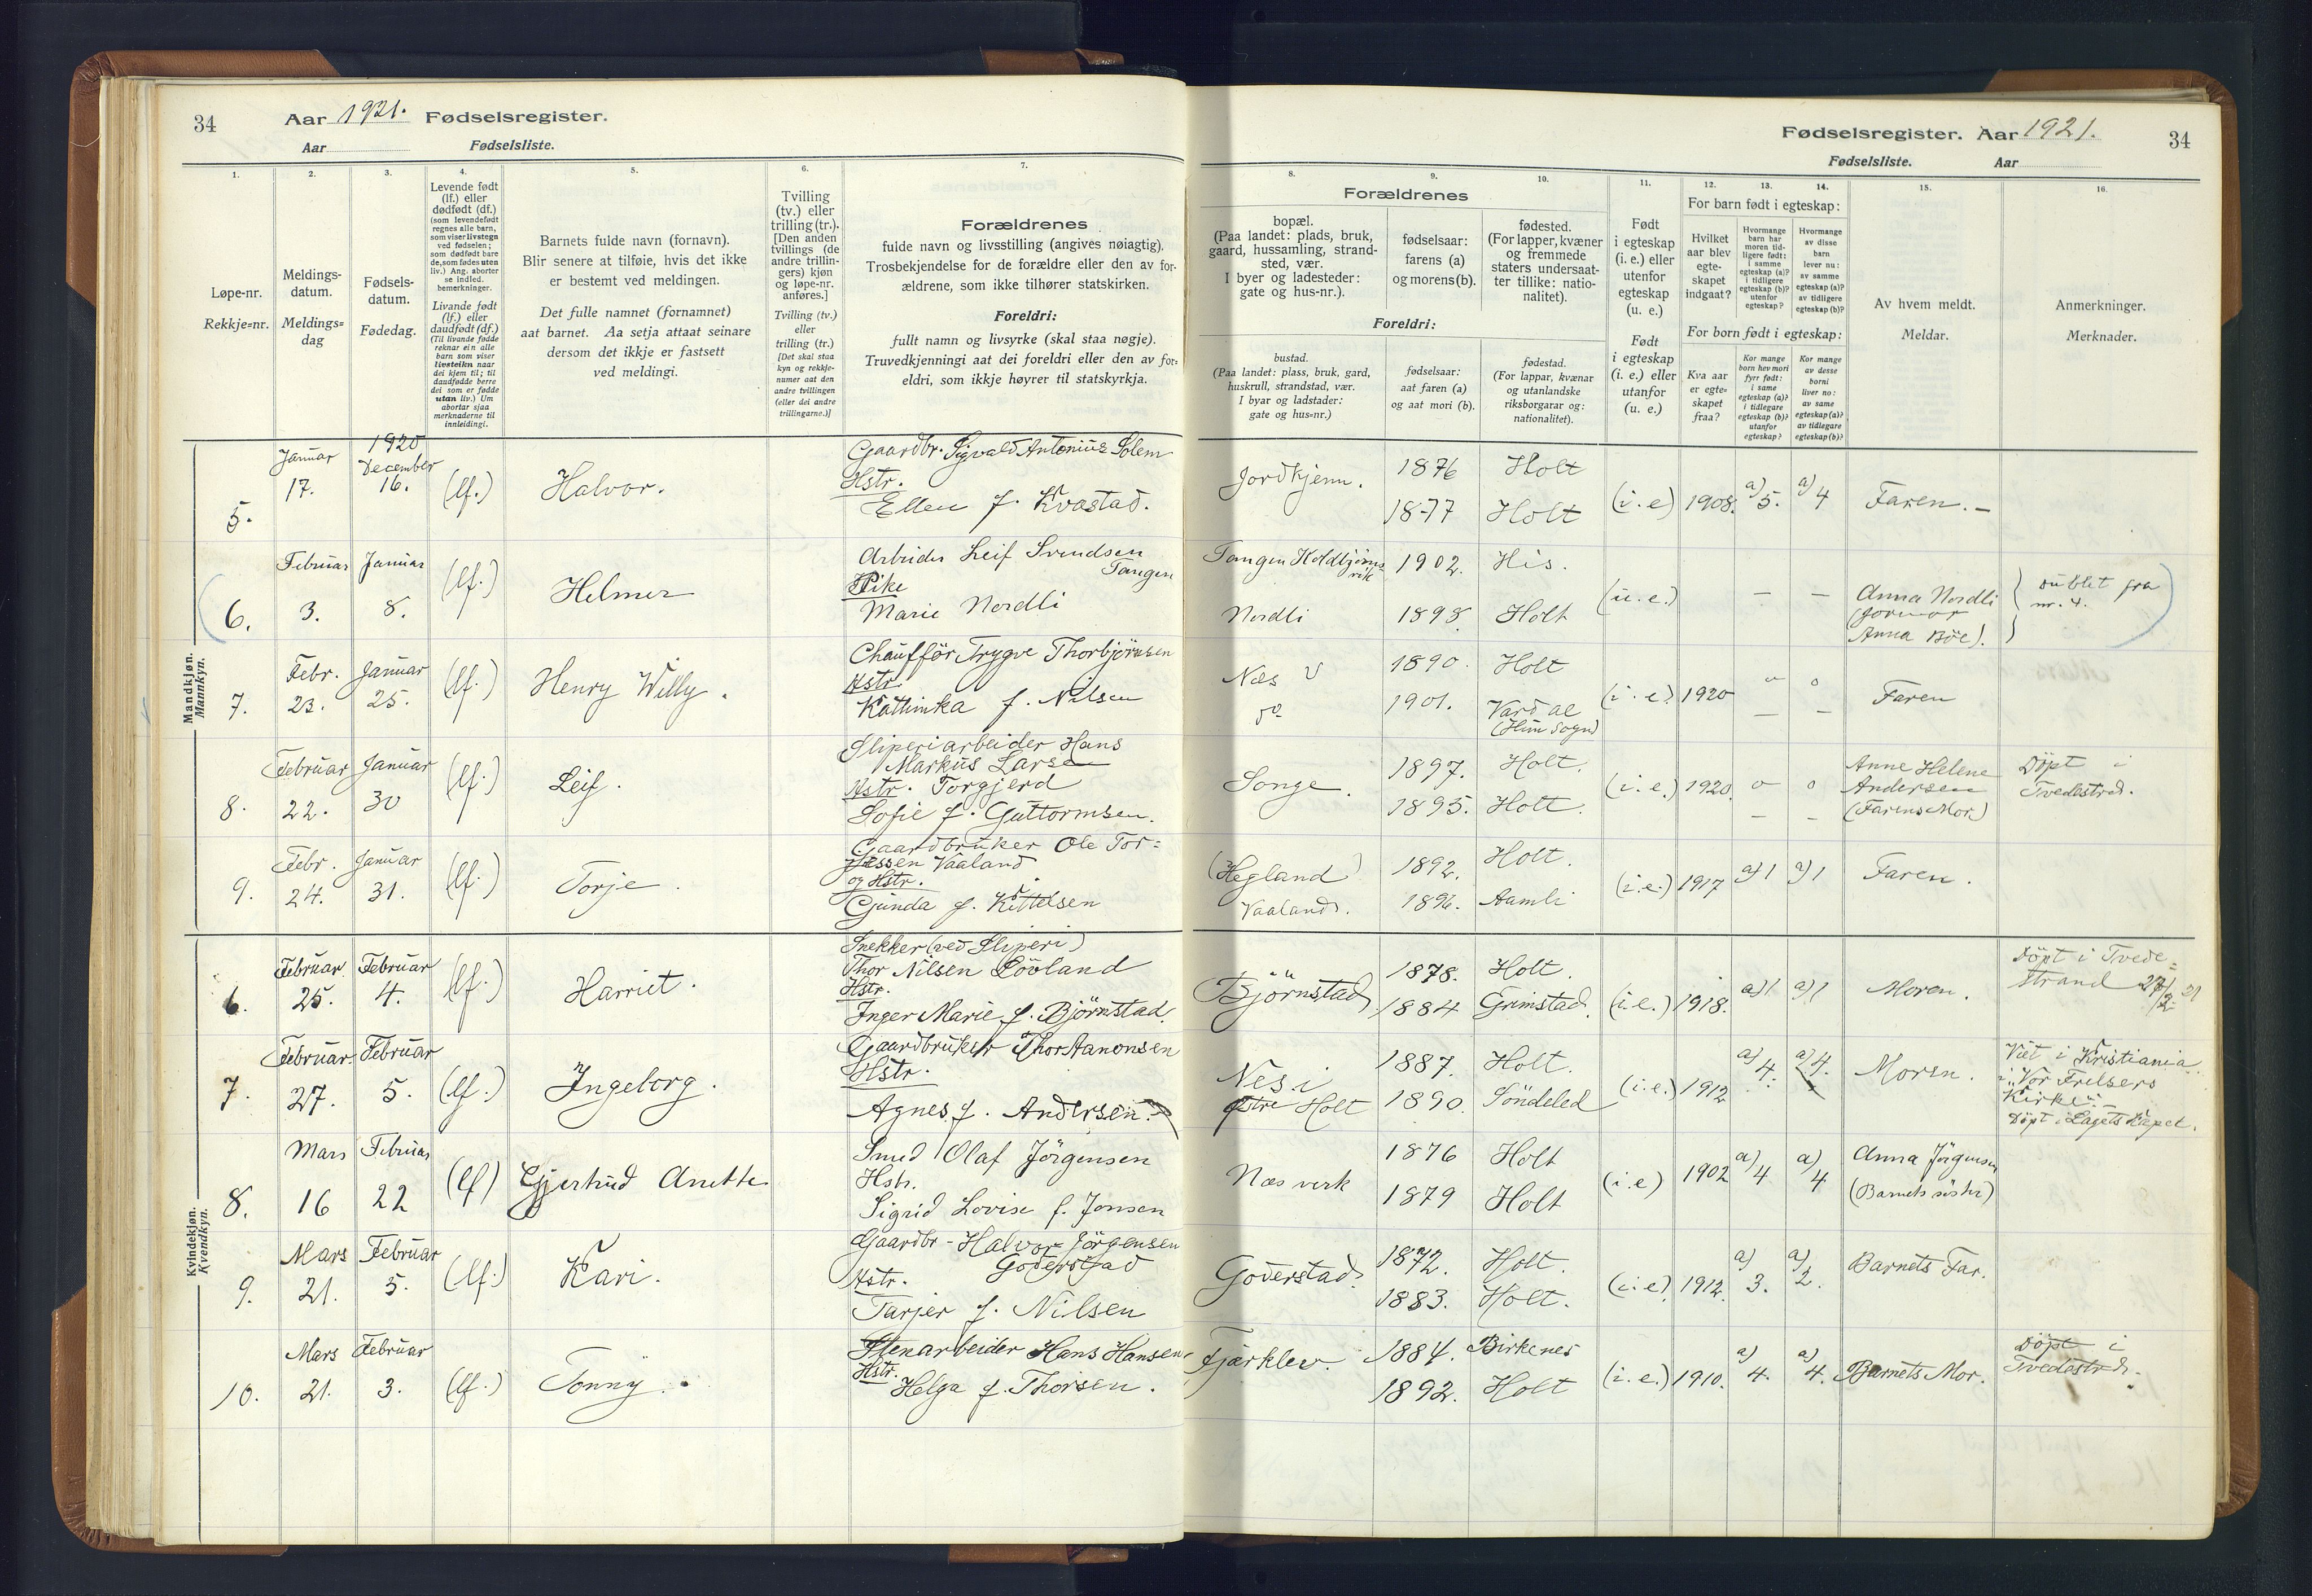 34
Aar 1921. Fødselsregister.
Aar
Fødselsliste.
1.
2.
3.
4.
5.
6.
7.
Løpe-nr.
Rekkje=nr.
Meldings-
datum.
Meldings=
dag
Fødsels-
datum.
Fødedag.
Levende født
(lf.) eller
dødfødt (df.)
(som levendefødt
regnes alle barn,
som viser livstegn
ved fødselen;
som dødfødt bare
de, som fødes uten
liv.) Ang. aborter
se indled.
bemerkninger.
Livande født
(lf.) eller
daudfødt (df.)
(Til livande fødde
reknar ein alle
barn som viser
livsteikn naar
dei kjem til; til
daudfødde berre
dei som er fødde
utan liv.) Um
abortar sjaa
merknaderne til
innleidingi.
Barnets fulde navn (fornavn).
Blir senere at tilføie, hvis det ikke
er bestemt ved meldingen.
Det fulle namnet (fornamnet)
aat barnet. Aa setja attaat seinare
dersom det ikkje er fastsett
ved meldingi.
Tvilling
(tv.) eller
trilling (tr.).
[Den anden
tvillings (de
andre trillin-
gers) kjøn
og løpe-nr.
anføres.]
Tvilling (tv.)
eller
trilling (tr.)
[Det skal staa
kyn og rekkje-
numer aat den
andre tvillingen
(eller dei andre
trillingarne.)]
Forældrenes
fulde navn og livsstilling (angives nøiagtig).
Trosbekjendelse for de forældre eller den av for-
ældrene, som ikke tilhører statskirken.
Foreldri:
fullt namn og livsyrke (skal staa nøgje).
Truvedkjenningi aat dei foreldri eller den av for=
eldri, som ikkje høyrer til statskyrkja.
Mandkjøn.
Mannkyn.
5.
Januar
17.
1920
December
16.
(lf.)
Halvor.
Gaardbr. Sigvald Antonius Solem
Hstr.
Ellen f. Kvastad.
6.
Februar
3.
Januar
8.
(lf.)
Helmer
Arbeider Leif Svendsen
Tangen
Pike
Marie Nordli
7.
Febr.
23.
Januar
25.
(lf.)
Henry Willy.
Chaufför Trygve Thorbjörnsen
Hstr.
Kattinka f. Nilsen
8.
Februar
22.
Januar
30
(lf.)
Leif.
Sliperiarbeider Hans
Markus Larsen
Hstr. Torgjerd
Sofie f. Guttormsen.
9.
Febr.
24.
Januar
31.
(lf.)
Torje.
Gaardbruker Ole Tor=
jussen Vaaland
og Hstr.
Gunda f. Kittelsen
Kvindekjøn.
Kvendkyn.
6.
Februar.
25.
Februar
4.
(lf.)
Harriet.
Snekker (ved Sliperi)
Thor Nilsen Lövland
Hstr.
Inger Marie f. Björnstad.
7.
Februar
27.
Februar
5.
(lf.)
Ingeborg.
Gaardbruker Thor Aanonsen
Hstr.
Agnes f. Andersen.
8.
Mars
16
Februar
22
(lf)
Gjertrud Anette
Smed Olaf Jörgensen
Hstr.
Sigrid Lovise f. Jonsen
9.
Mars
21.
Februar
5.
(lf.)
Kari.
Gaardbr - Halvor Jörgensen
Goderstad
Hstr.
Tarjer f. Nilsen
10.
Mars
21.
Februar
3.
(lf.)
Tonny.
Stenarbeider Hans Hansen
Hstr.
Helga f. Thorsen.
Fødselsregister. Aar 1921.
34
Fødselsliste.
Aar
8.
9.
10.
11.
12.
13.
14.
15.
16.
Forældrenes
bopæl.
(Paa landet: plads, bruk,
gaard, hussamling, strand-
sted, vær.
I byer og ladesteder:
gate og hus-nr.).
fødselsaar:
farens (a)
og morens (b).
fødested.
(For lapper, kvæner
og fremmede
staters undersaat-
ter tillike: natio-
nalitet).
Foreldri:
bustad.
(Paa landet: plass, bruk, gard,
huskrull, strandstad, vær.
I byar og ladstader:
gate og hus=nr.)
fødselsaar:
aat faren (a)
og aat mori (b).
fødestad.
(For lappar, kvænar
og utanlandske
riksborgarar og:
nationalitet).
Født
i egteskap
(i. e.) eller
utenfor
egteskap
(u. e.)
Født
i egteskap
(i. e.) eller
utanfor
(u. e.)
For barn født i egteskap:
Hvilket
aar blev
egte-
skapet
indgaat?
Hvormange
barn har
moren tid-
ligere født:
i samme
egteskap (a)?
i tidligere
egteskap (b)?
utenfor
egteskap?
Hvormange
av disse
barn
lever nu:
av samme
egteskap (a)?
av tidligere
egteskap (b)?
For born født i egteskap:
Kva aar
er egte=
skapet
fraa?
Kor mange
born hev mori
fyrr født:
i same
egteskap (a)?
i tidlegare
egteskap (b)?
utanfor
egteskap?
Kor mange
av desse
borni
liver no:
av same
egteskap (a)?
av tidlegare
egteskap (b)?
Av hvem meldt.
Meldar.
Anmerkninger.
Merknader.
Jordkjenn.
1876
1877
Holt
Holt
(i.e)
1908.
a) 5.
a) 4
Faren. –
Tangen Holdbjörns
vik
Nordli
1902.
1898.
His.
Holt
(u.e.)
—
—
Anna Nordli
(
Anna Böe).
nr. 4.
Næs V
do
1890.
1901.
Holt
Vardal
(i.e.)
1920
o
—
o
—
Faren
Songe.
1897.
1895.
Holt.
Holt.
(i.e.)
1920.
o
–
o
–
Anne Helene
Andersen
(Farens Mor)
Döpt i
Tvedestrd.
(Hegland)
Vaaland.
1892.
1896.
Holt.
Aamli
(i.e.)
1917
a) 1
a) 1
Faren.
Björnstad
1878.
1884
Holt.
Grimstad.
(i.e.)
1918.
a) 1
a) 1
Moren.
Döpt i Tvede=
strand 27/2 21
Nes i
østre Holt
1887.
1890.
Holt.
Söndeled
(i.e.)
1912
a) 4.
a) 4.
Moren.
Viet i Kristiania
i "Vor Frelsers
Kirke" –
Döpt i
Næs verk
1876
1879
Holt
Holt
(i.e)
1902
a) 4
a) 4
Anna Jörgensen
(Barnets söster)
Goderstad.
1872.
1883.
Holt.
Holt.
(i.e)
1912.
a) 3.
a) 2.
Barnets Far.
Fjærklev.
1884.
1892.
Birkenes
Holt
(i.e.)
1910.
a) 4.
a) 4.
Barnets Mor.
Döpt i
Tvedestrd.